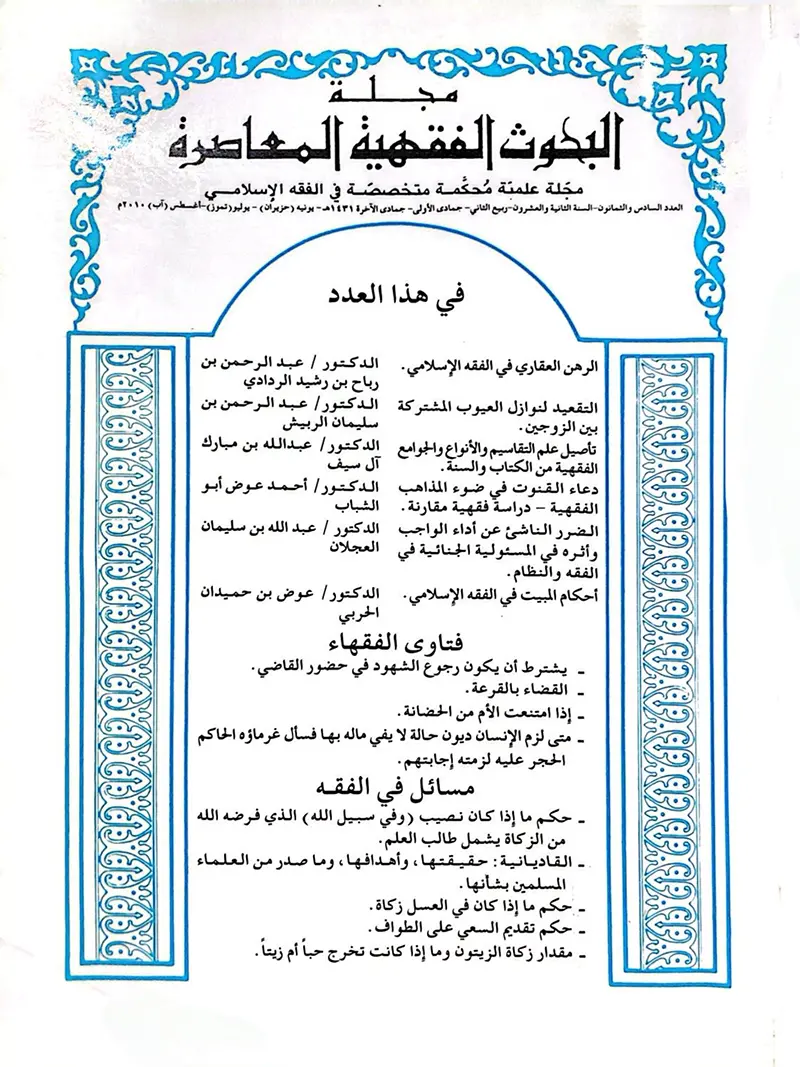 مجلة
البحوث الفقهية المعاصرة
مجلة علمية مُحكَّمة متخصصة في الفقه الإسلامي
العدد السادس والثمانون- السنة الثانية والعشرون- ربيع الثاني- جمادى الأولى- جمادى الآخرة ١٤٣١هـ- يونيه (حزيران) - يوليو(تموز)- أغسطس (آب) ٢٠١٠م
في هذا العدد
الرهن العقاري في الفقه الإسلامي. الدكتور / عبد الرحمن بن
رباح بن رشيد الردادي
التقعيد لنوازل العيوب المشتركة الدكتور/ عبد الرحمن بن
بين الزوجين. سليمان الربيش
تأصيل علم التقاسيم والأنواع والجوامع الدكتور/ عبدالله بن مبارك
الفقهية من الكتاب والسنة. آل سيف
دعاء القنوت في ضوء المذاهب الدكتور/ أحمد عوض أبو
الفقهية – دراسة فقهية مقارنة. الشباب
الضرر الناشئ عن أداء الواجب الدكتور / عبد الله بن سليمان
وأثره في المسئولية الجنائية في العجلان
الفقه والنظام.
أحكام المبيت في الفقه الإسلامي. الدكتور/ عوض بن حميدان
الحربي
فتاوى الفقهاء
ـ يشترط أن يكون رجوع الشهود في حضور القاضي.
ـ القضاء بالقرعة.
ـ إذا امتنعت الأم من الحضانة.
ـ متى لزم الإنسان ديون حالة لا يفي ماله بها فسأل غرماؤه الحاكم
الحجر عليه لزمته إجابتهم.
مسائل في الفقه
ـ حكم ما إذا كان نصيب (وفي سبيل الله) الذي فرضه الله
من الزكاة يشمل طالب العلم.
ـ القاديانية: حقيقتها، وأهدافها، وما صدر من العلماء
المسلمين بشأنها.
ـ حكم ما إذا كان في العسل زكاة.
ـ حكم تقديم السعي على الطواف.
ـ مقدار زكاة الزيتون وما إذا كانت تخرج حباً أم زيتاً.